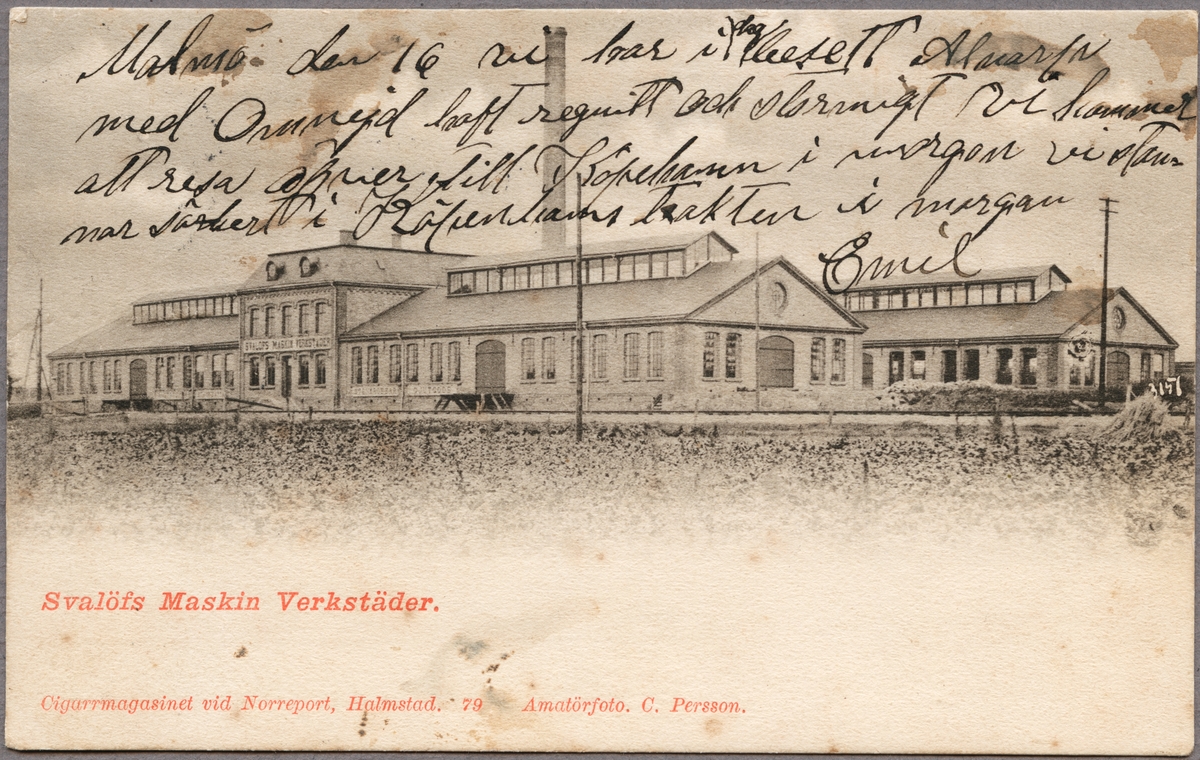 Malmö den 16 vi har i dag besett Alnarp
med Omnejd haft regnitt och stormigt Vi kommer
att resa öfver till Köpehamn i morgon vi stan-
nar säkert i Köpenhams trakten i morgon
Emil
SVALÖFS MASKIN VERKSTÄDER
3151
Svalöfs Maskin Verkstäder.
Cigarrmagasinet vid Norreport, Halmstad. 79 Amatörfoto. C. Persson.